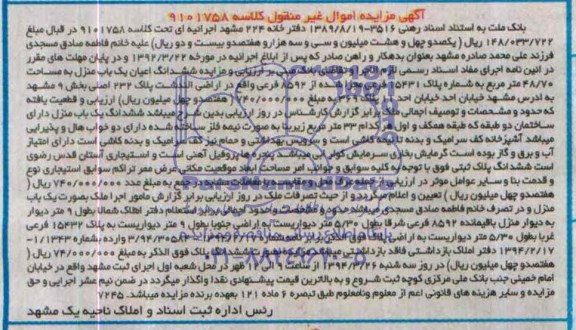 آگهی مزایده اموال غیر منقول کلاسه ۹۱۰۱۷۵۸
بانک ملت به استناد اسناد رهنی ۳۵۱۶-۱۳۸۹/۸/۱۹ دفتر خانه ۲۲۴ مشهد اجرائیه ای تحت کلاسه ۹۱۰۱۷۵۸ در قبال مبلغ
۱۴۸/۰۳۳/۷۲۲ ریال ( یکصدو چهل و هشت میلیون و سی و سه هزار و هفتصدو بیست و دو ریال) علیه خانم فاطمه صادق مسجدی
فرزند علی محمد صادره مشهد بعنوان بدهکار و راهن صادر که پس از ابلاغ اجرائیه در مورخه ۱۳۹۲/۳/۲۲ و در پایان مهلت های مقرر
در آئین نامه اجرای مفاد اسناد رسمی ارزیابی و مزایده ششدانگ اعیان یک باب منزل به مساحت
۴۸/۷۰ متر مربع به شماره پلاک ۱۵۴۳۱ از ۸۵۹۲ فرعی واقع در اراضی الندشت پلاک ۲۳۲ اصلی بخش ۹ مشهد
به آدرس مشهد خیابان احد خیابان احد پلاک ۲۶۹ به مبلغ ۷۴۰/۰۰۰/۰۰۰ هفتصدو چهل میلیون ریال) ارزیابی و قطعیت یافته
که حدود و مشخصات و توصیف اجمالی ملک برابر گزارش کارشناس در روز ارزیابی بدین شرح میباشد ششدانگ یک باب منزل دارای
ساختمان دو طبقه که طبقه همکف و اول هر کدام ۳۳ متر مربع زیربنا به صورت نیمه فلز ساخته شده دارای دو خواب هال و پذیرایی
میباشد آشپزخانه کف سرامیک و بدنه کاشی است و سرویس بهداشتی و حمام نیز کف سرامیک و بدنه کاشی است دارای امتیاز
آب و برق و گاز بوده است گرمایش بخاری سرمایش کولر آبی میباشد پنجره ها پروفیل آهنی است و استیجاری آستان قدس رضوی
است ششدانگ پلاک ثبتی فوق با توجه به کلیه سوابق و جوانب امر مساحت ابعاد موقعیت مکانی عرض ممر تراکم سوابق استیجاری نوع
و قدمت بنا و سایر عوامل موثر در ارزیابی به مبلغ عدد ۷۴۰/۰۰۰/۰۰۰ ریال (
هفتصدو چهل میلیون ریال ) تعیین و اعلام میگردد و از حیث تصرفات ملک در روز ارزیابی برابر گزارش مامور اجرا ملک بصورت یک باب
منزل و در تصرف خانم فاطمه صادق مسجدی میباشد حدود و مشخصات و حدود اجمالی برابر استعلام دفتر املاک شمالا بطول ۹ متر دیوار
به دیوار منزل باقیمانده ۸۵۹۲ فرعی شرقا بطول ۵/۳۰ متر دیواریست به اراضی جنوبا بطول ۹ متر دیواریست به پلاک ۱۵۴۳۲ فرعی
غربا بطول ۵/۳۰ متر دیواریست به اراضی پلاک فوق الذکر برابر نامه شماره ۳/۹۴/۳۰۵۸ وارده بشماره ۱۱/۳۴۳-
۱۳۹۴/۲/۱۷ دفتر املاک بازداشتی فاقد بازداشتی میباشد ششدانگ پلاک فوق الذکر به مبلغ ۷۴۰/۰۰۰/۰۰۰ ریال (
هفتصدو چهل میلیون ریال) در روز سه شنبه ۱۳۹۴/۳/۲۶ از ساعت ۹ الی ۱۲ ظهر در محل شعبه اول اجرای ثبت مشهد واقع در خیابان
امام خمینی جنب بانک ملی مرکزی کوچه ثبت شروع و به بالاترین قیمت پیشنهادی نقدا واگذار میگردد در ضمن نیم عشر اجرایی و حق
مزایده و سایر هزینه های قانونی اعم از معلوم ونامعلوم طبق تبصره ۶ ماده ۱۲۱ بعهده برنده مزایده میباشد. ۷۲۴۵
رئیس اداره ثبت اسناد و املاک ناحیه یک مشهد